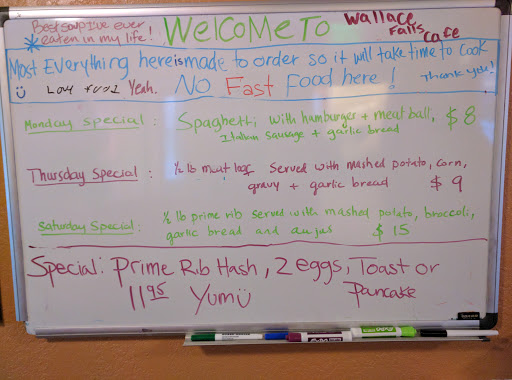 Best soup I've ever
eaten in my life!
WelCoMe To
Wallace
Falls
Cafe
Most Everything here is made to order so it will take time to cook
Love food Yeah.
No Fast Food here!
Thank you!
Monday Special: Spaghetti with hamburger + meat ball, $8
Italian Sausage + garlic bread
Thursday Special: 1/2 lb meat loaf Served with mashed potato, corn,
gravy + garlic bread $9
Saturday Special: 1/2 lb prime rib served with mashed potato, broccoli,
garlic bread and aujus $15
Special: Prime Rib Hash, 2 eggs, Toast or
Pancake
11 95 Yum